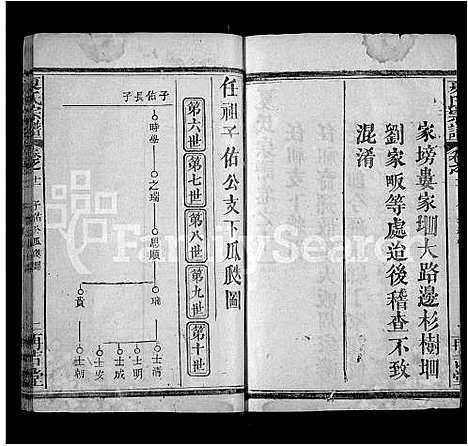 家塝婁家堋大路邊杉樹堋
劉家畈等處迨後稽查不致
混淆
任祖子佑公支下瓜瓞圖
第六世
第七世
第八世
第九世
第十世
子佑長子
時學
之瑞
思順
瑞
貴
士清
士明
士成
士安
士朝
氏宗譜
FamilySearch